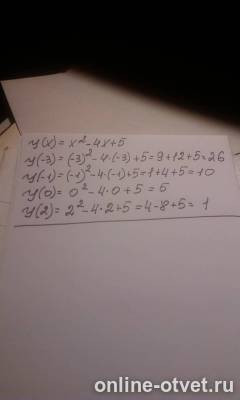 y(x) = x² - 4x + 5
y(-3) = (-3)² - 4·(-3) + 5 = 9 + 12 + 5 = 26
y(-1) = (-1)² - 4·(-1) + 5 = 1 + 4 + 5 = 10
y(0) = 0² - 4·0 + 5 = 5
y(2) = 2² - 4·2 + 5 = 4 - 8 + 5 = 1
online-otvet.ru